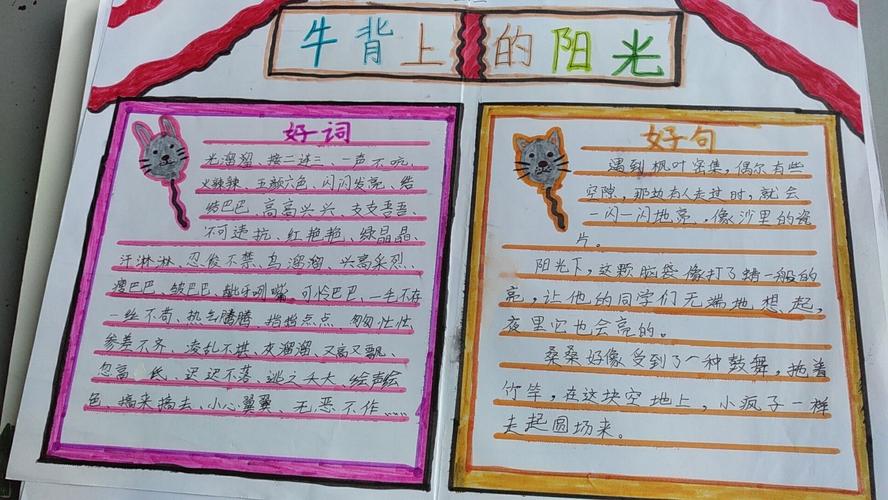 牛背上的阳光
好词
光溜溜、接二连三、一声不吭、
火辣辣、五颜六色、闪闪发亮、结
结巴巴、高高兴兴、支支吾吾、
不可违抗、红艳艳、绿晶晶、
汗淋淋、忍俊不禁、乌溜溜、兴高采烈、
瘦巴巴、皱巴巴、龇牙咧嘴、可怜巴巴、一毛不存
一丝不苟、热气腾腾、指指点点、匆匆忙忙
参差不齐、凌乱不堪、灰溜溜、又高又飘、
忽高 低、迟迟不落、逃之夭夭、绘声绘
色、搞来搞去、小心翼翼、无恶不作……
好句
遇到枫叶密集,偶尔有些
空隙,那边有人走过时,就会
一闪一闪地亮,像沙里的瓷
片。
阳光下,这颗脑袋像打了蜡一般的
亮,让他的同学们无端地想起,
夜里它也会亮的。
桑桑好像受到了一种鼓舞,拖着
竹竿,在这块空地上,小疯子一样
走起圆场来。